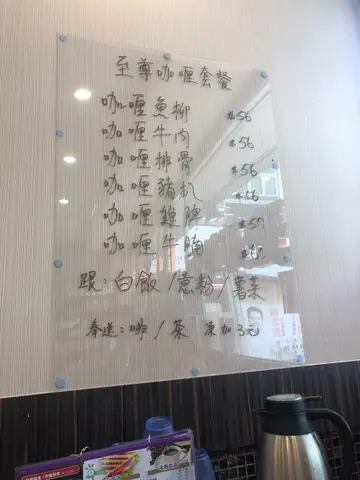 至尊咖喱套餐
咖喱魚柳 $56
咖喱牛肉 $56
咖喱排骨 $56
咖喱豬扒 $56
咖喱雞脾
咖喱牛腩
跟:白飯/意粉/薯菜
奉送:啡/茶 凍加3元